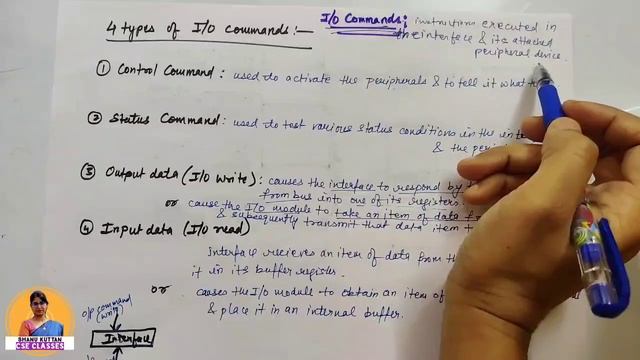 4 types of I/O commands:-
I/O Commands: instructions executed in
the interface & its attached
peripheral device.
① Control Command: used to activate the peripherals & to tell it what
② Status Command: used to test various status conditions in the
& the
③ Output data (I/O write): causes the interface to respond by
from bus into one of its registers.
or cause the I/O module to take an item of data
& subsequently transmit that data item
④ Input data (I/O read)
Interface recieves an item of data from
it in its buffer register.
or causes the I/O module to obtain an item of
& place it in an internal buffer.
o/p command
(write)
Interface
BHANU KUTTAN
CSE CLASSES